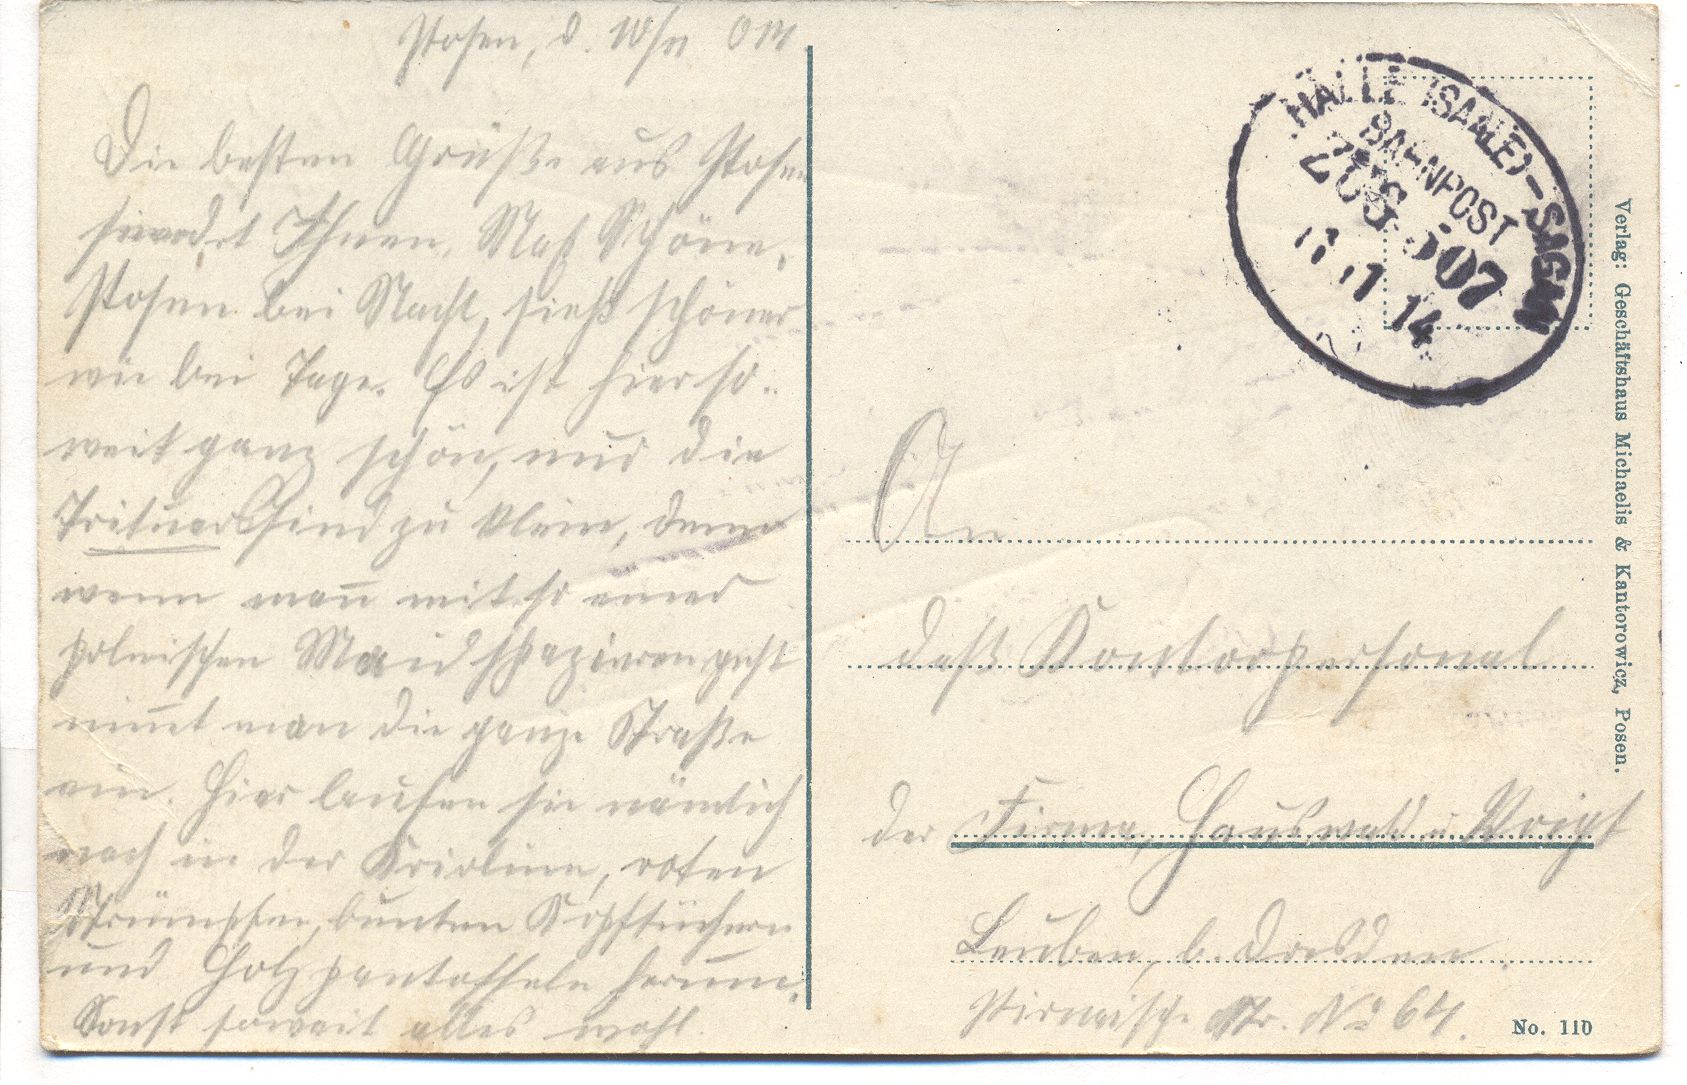 Posen, d. 10/11
Die besten Grüße aus Posen
sendet Ihnen, Max Schöne,
Posen bei Nacht, sieht schöner
wie bei Tage. Es ist hier so-
weit ganz schön, nur die
sind zu klein, denn
wenn man mit so einer
polnischen Maid spazieren geht
nimmt man die ganze Straße
ein. Hier laufen sie nämlich
noch in der Krioline, roten
Strümpfen, bunten Kopftüchern
und Holzpantoffeln herum.
Sonst soweit alles wohl.
HALLE (SAALE) - SAGAN
BAHNPOST
ZUG 507
11.11 14
An
daß Kontorpersonal
der Firma, Hauswald u. Voigt
Leuben, b. Dresden.
Pirnaische Str. No 64.
Verlag: Geschäftshaus Michaelis & Kantorowicz, Posen.
No. 110